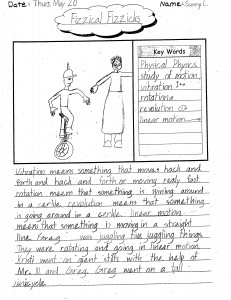 Date: Thurs. May 20
Name: Sunny L.
Fizzical Fizzicks
Key Words
Physical Physics
study of motion
vibration
rotation
revolution
linear motion
Vibration means something that moves back and
forth and back and forth or moving realy fast.
rotation means that something is going around
in a cerkle. revolution means that something
is going around in a cerkle. linear motion
means that something is moving in a straight
line. Greg was juggling five juggling things.
They were rotating and going in linear motion.
Kristi went on giant stilts with the help of
Mr. Ill and Greg. Greg went on a tall
unicycle.